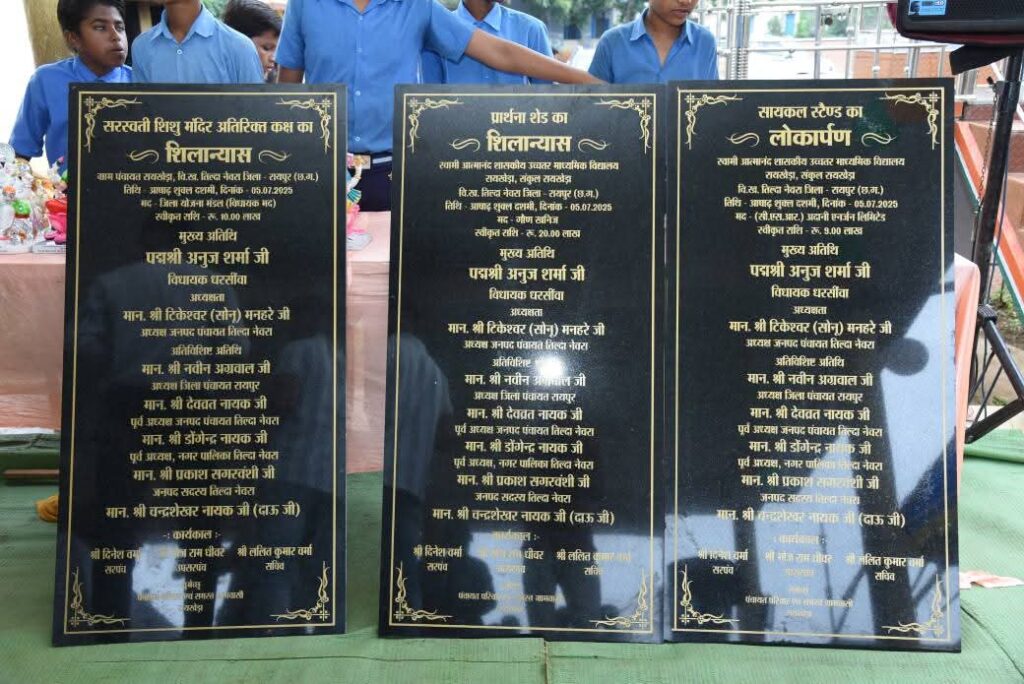 सरस्वती शिशु मंदिर अतिरिक्त कक्ष का
शिलान्यास
ग्राम पंचायत रायखेड़ा, वि.ख. तिल्दा नेवरा जिला - रायपुर (छ.ग.)
तिथि - आषाढ़ शुक्ल दशमी, दिनांक - 05.07.2025
मद - जिला योजना मंडल (विधायक मद)
स्वीकृत राशि - रू. 10.00 लाख
मुख्य अतिथि
पद्मश्री अनुज शर्मा जी
विधायक धरसींवा
अध्यक्षता
मान. श्री टिकेश्वर (सोनू) मनहरे जी
अध्यक्ष जनपद पंचायत तिल्दा नेवरा
अतिविशिष्ट अतिथि
मान. श्री नवीन अग्रवाल जी
अध्यक्ष जिला पंचायत रायपुर
मान. श्री देवव्रत नायक जी
पूर्व अध्यक्ष जनपद पंचायत तिल्दा नेवरा
मान. श्री डोंगेन्द्र नायक जी
पूर्व अध्यक्ष, नगर पालिका तिल्दा नेवरा
मान. श्री प्रकाश सगरवंशी जी
जनपद सदस्य तिल्दा नेवरा
मान. श्री चन्द्रशेखर नायक जी (दाऊ जी)
-: कार्यकाल :-
श्री दिनेश वर्मा राम धीवर श्री ललित कुमार वर्मा
सरपंच उपसरपंच सचिव
पंचायत परिवार एवं समस्त ग्रामवासी
रायखेड़ा
प्रार्थना शेड का
शिलान्यास
स्वामी आत्मानंद शासकीय उच्चतर माध्यमिक विद्यालय
रायखेड़ा, संकुल रायखेड़ा
वि.ख. तिल्दा नेवरा जिला - रायपुर (छ.ग.)
तिथि - आषाढ़ शुक्ल दशमी, दिनांक - 05.07.2025
मद - गौण खनिज
स्वीकृत राशि - रू. 20.00 लाख
मुख्य अतिथि
पद्मश्री अनुज शर्मा जी
विधायक धरसींवा
अध्यक्षता
मान. श्री टिकेश्वर (सोनू) मनहरे जी
अध्यक्ष जनपद पंचायत तिल्दा नेवरा
अतिविशिष्ट
मान. श्री नवीन अग्रवाल जी
अध्यक्ष जिला पंचायत रायपुर
मान. श्री देवव्रत नायक जी
पूर्व अध्यक्ष जनपद पंचायत तिल्दा नेवरा
मान. श्री डोंगेन्द्र नायक जी
पूर्व अध्यक्ष, नगर पालिका तिल्दा नेवरा
मान. श्री प्रकाश सगरवंशी जी
जनपद सदस्य तिल्दा नेवरा
मान. श्री चन्द्रशेखर नायक जी (दाऊ जी)
कार्यकाल :-
श्री दिनेश वर्मा राम धीवर श्री ललित कुमार वर्मा
सरपंच उपसरपंच सचिव
पंचायत ग्रामवासी
सायकल स्टैण्ड का
लोकार्पण
स्वामी आत्मानंद शासकीय उच्चतर माध्यमिक विद्यालय
रायखेड़ा, संकुल रायखेड़ा
वि.ख. तिल्दा नेवरा जिला - रायपुर (छ.ग.)
तिथि - आषाढ़ शुक्ल दशमी, दिनांक - 05.07.2025
मद - (सी.एस.आर.) अदानी एनर्जन लिमिटेड
स्वीकृत राशि - रू. 9.00 लाख
मुख्य अतिथि
पद्मश्री अनुज शर्मा जी
विधायक धरसींवा
अध्यक्षता
मान. श्री टिकेश्वर (सोनू) मनहरे जी
अध्यक्ष जनपद पंचायत तिल्दा नेवरा
अतिविशिष्ट अतिथि
मान. श्री नवीन अग्रवाल जी
अध्यक्ष जिला पंचायत रायपुर
मान. श्री देवव्रत नायक जी
पूर्व अध्यक्ष जनपद पंचायत तिल्दा नेवरा
मान. श्री डोंगेन्द्र नायक जी
पूर्व अध्यक्ष, नगर पालिका तिल्दा नेवरा
मान. श्री प्रकाश सगरवंशी जी
जनपद सदस्य तिल्दा नेवरा
मान. श्री चन्द्रशेखर नायक जी (दाऊ जी)
: कार्यकाल :
श्री दिनेश वर्मा श्री भोज राम धीवर श्री ललित कुमार वर्मा
सरपंच सचिव
पंचायत परिवार एवं समस्त ग्रामवासी